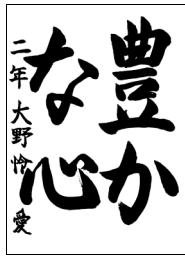 豊か
な心
二年 大野怜愛